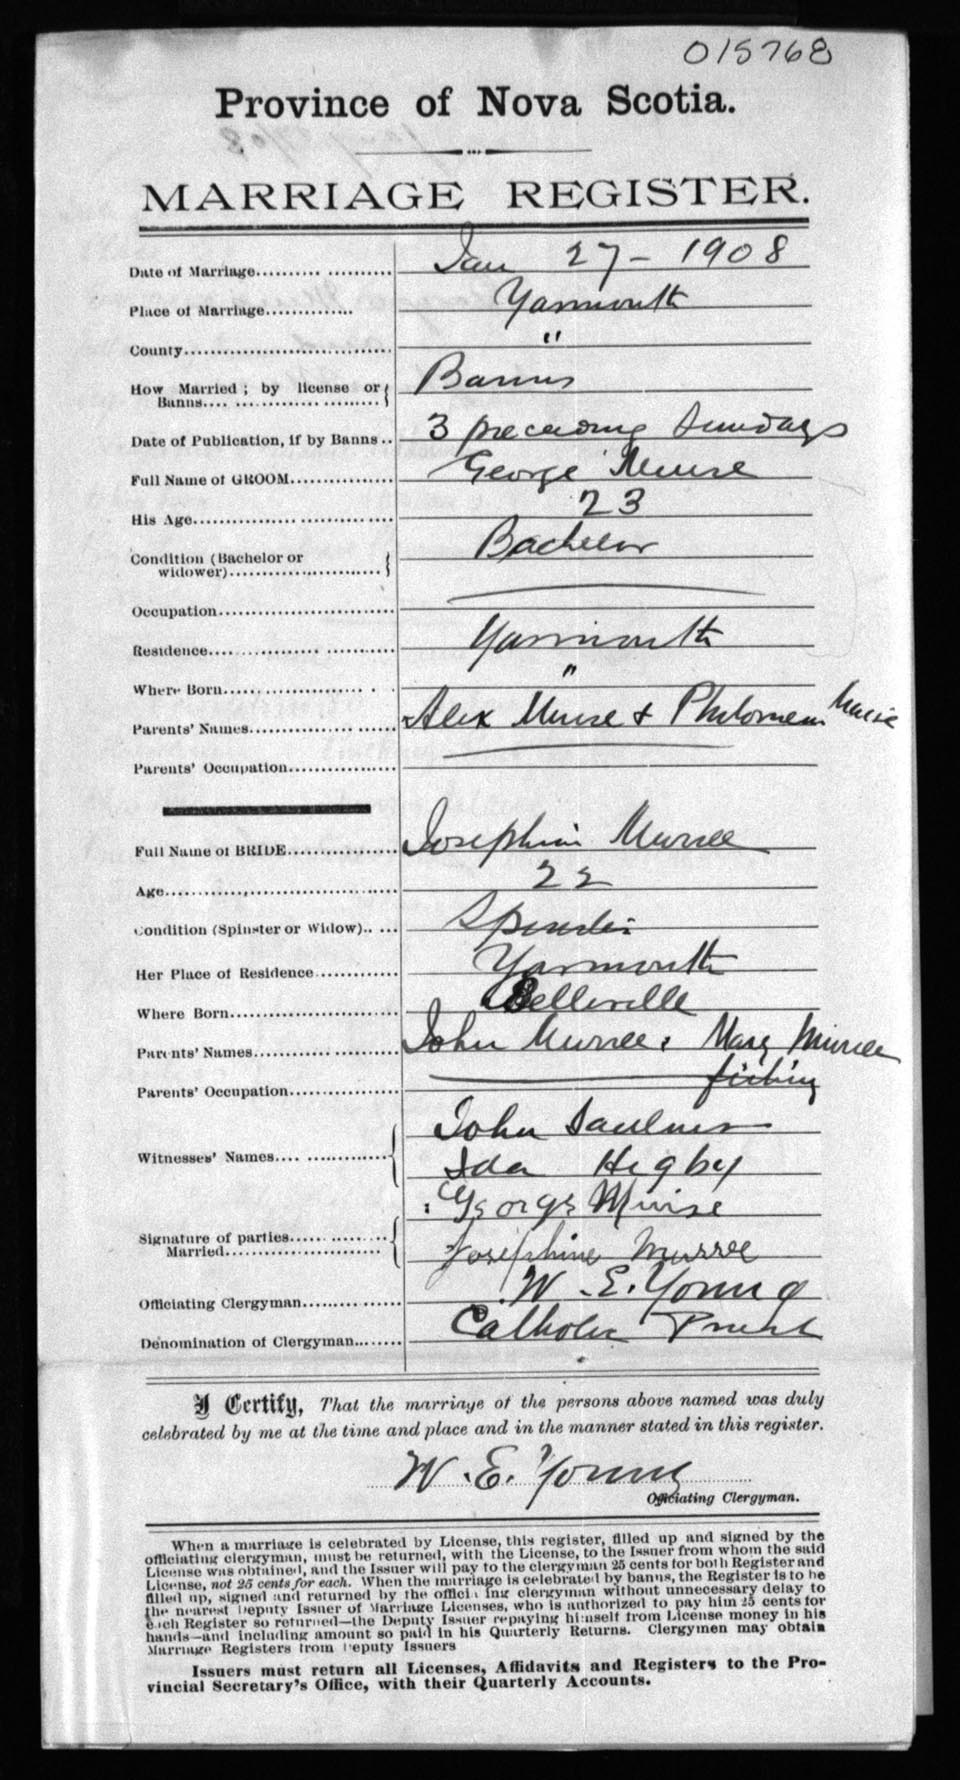 015768
Province of Nova Scotia.
MARRIAGE REGISTER.
Date of Marriage.......... Jan 27 - 1908
Place of Marriage.............. Yarmouth
County.................................. "
How Married; by license or
Banns.... .......................... Banns
Date of Publication, if by Banns.. 3 preceeding Sundays
Full Name of GROOM................ George Muise
His Age.................................. 23
Condition (Bachelor or
widower)............................ Bachelor
Occupation..............................
Residence.............................. Yarmouth
Where Born............................ "
Parents' Names........................ Alex Muise & Philomen
Parents' Occupation..................
Full Name of BRIDE................ Josephin Murree
Age...................................... 22
Condition (Spinster or Widow)..
Her Place of Residence............. Yarmouth
Where Born............................ Belleville
Parents' Names........................ John Murree : Mary Murree
Parents' Occupation.................. fishing
John Saulner
Witnesses' Names.... ..............
Ida Higby
: George Muise
Signature of parties................
Married..........................
Josephine Murree
Officiating Clergyman............... W. E. Young
Denomination of Clergyman........ Catholic Priest
I Certify, That the marriage of the persons above named was duly
celebrated by me at the time and place and in the manner stated in this register.
W. E. Young
Officiating Clergyman.
When a marriage is celebrated by License, this register, filled up and signed by the
officiating clergyman, must be returned, with the License, to the Issuer from whom the said
License was obtained, and the Issuer will pay to the clergyman 25 cents for both Register and
License, not 25 cents for each. When the marriage is celebrated by banns, the Register is to be
filled up, signed and returned by the officiating clergyman without unnecessary delay to
the nearest Deputy Issuer of Marriage Licenses, who is authorized to pay him 25 cents for
each Register so returned—the Deputy Issuer repaying himself from License money in his
hands—and including amount so paid in his Quarterly Returns. Clergymen may obtain
Marriage Registers from Deputy Issuers
Issuers must return all Licenses, Affidavits and Registers to the Pro-
vincial Secretary's Office, with their Quarterly Accounts.